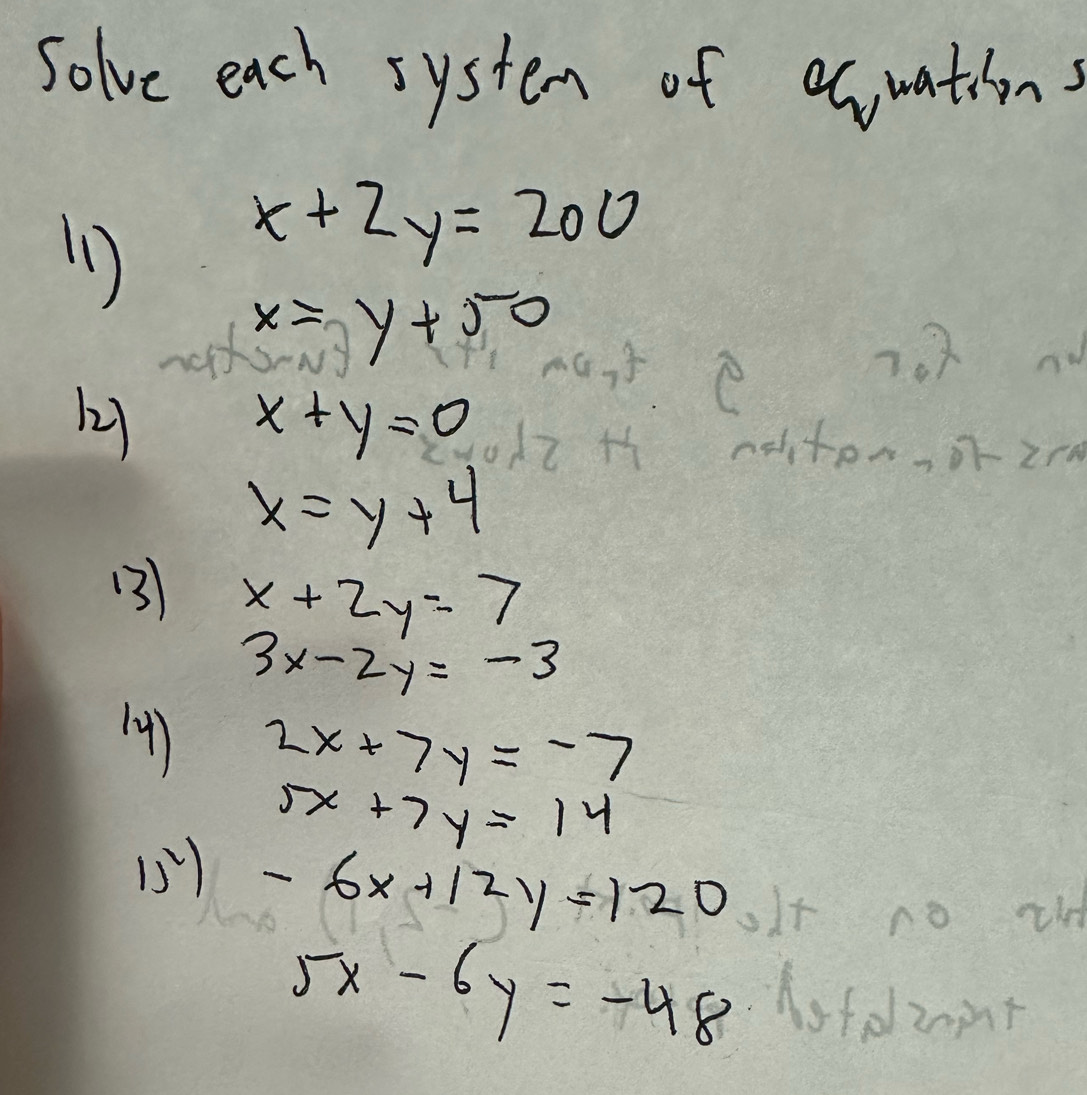 Solve each system of equations
11) x + 2y = 200
x = y + 50
12) x + y = 0
x = y + 4
13) x + 2y = 7
3x - 2y = -3
14) 2x + 7y = -7
5x + 7y = 14
15) - 6x + 12y = 120
5x - 6y = -48